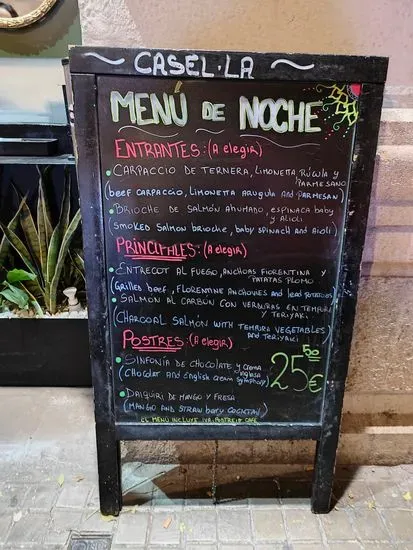 CASEL·LA
MENÚ DE NOCHE
ENTRANTES: (A elegir)
• CARPACCIO DE TERNERA, LIMONETTA, RÚCULA y
PARMESANO
(beef CARPACCIO, LIMONETTA ARUGULA AND PARMESAN)
• BRIOCHE DE SALMÓN AHUMADO, ESPINACA BABY
y ALIOLI
(SMOKED SALMON BRIOCHE, BABY SPINACH AND AIOLI)
PRINCIPALES: (A elegir)
• ENTRECOT AL FUEGO, ANCHOAS FIORENTINA y
PATATAS PLOMO
(GRILLED BEEF, FLORENTINE ANCHOVIES AND LEAD POTATOES)
• SALMON AL CARBÓN CON VERDURAS EN TEMPURA
y TERIYAKI
(CHARCOAL SALMÓN WITH TEMPURA VEGETABLES
AND TERIYAKI)
POSTRES: (A elegir)
• SINFONÍA DE CHOCOLATE y CREMA
inglesa
(CHOCOLAT AND ENGLISH CREAM SYMPHONY)
25,50€
• DAIQUIRI DE MANGO y FRESA
(MANGO AND STRAWBERY COCKTAIL)
EL MENÚ INCLUYE IVA, POSTRE O CAFÉ